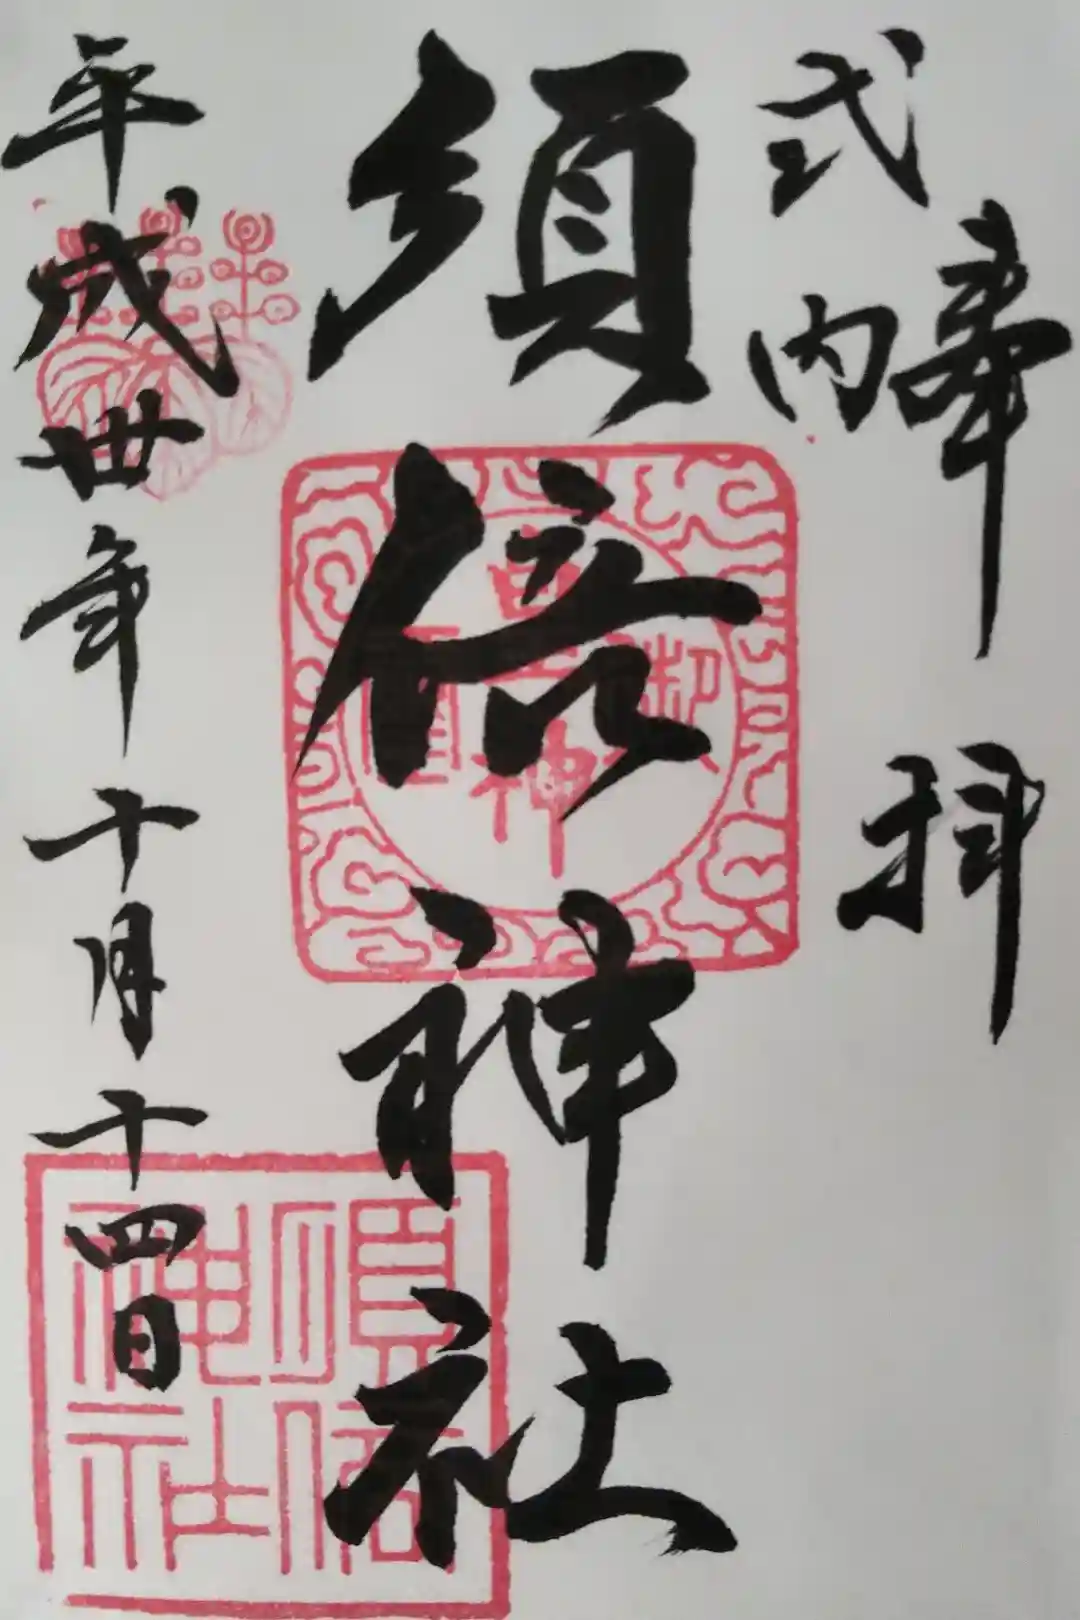 奉拝
式内
須倍神社
平成卅年十月十四日
須倍神社